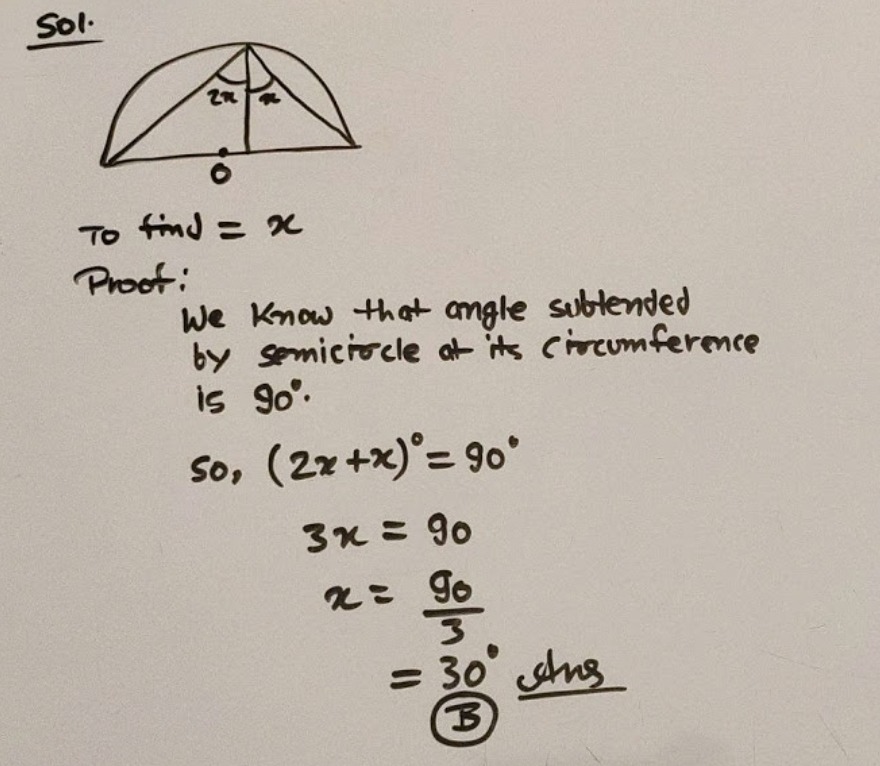 Sol.
2x x
O
To find = x
Proof:
We know that angle subtended
by semicircle at its circumference
is 90°.
So, (2x+x)° = 90°
3x = 90
x = 90/3
= 30° Ans
B